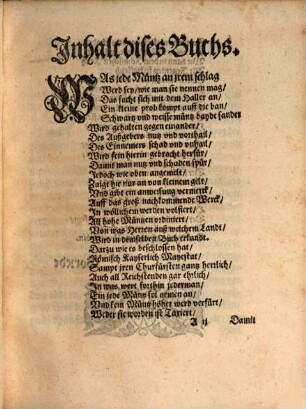 Inhalt dises Buchs.
WAs jede Müntz an jrem schlag
Werd sey/wie man sie nennen mag/
Das facht sich mit dem Haller an/
Ein kleine prob kompt auff die ban/
Schwartz vnd weisse müntz bayde sander
Wird gehalten gegen einander/
Des Außgebers nutz vnd vortheil/
Des Einnemers schad vnd vnhail/
Wird fein hierin gebracht herfür/
Damit man nutz vnd schaden spür/
Jedoch wie oben angemelt/
Zaigt hie nur an von kleinem gelt/
Vnd gibt ein anweisung vermerck/
Auff das groß nachkommende Werck/
In wöllichem werden volfiert/
All hohe Müntzen ordiniert/
Von was Herren auß welchem Landt/
Wird in demselben Buch erkandt.
Darzu wie es beschlossen hat/
Römisch Kayserlich Mayestat/
Sampt jren Churfürsten gantz herrlich/
Auch all Reichstenden gar ehrlich/
In was wert forthin jederman/
Ein jede Müntz sol nemen an/
Vnd kein Müntz höher werd verfürt/
Weder sie worden ist Taxiert/
A ij Damit